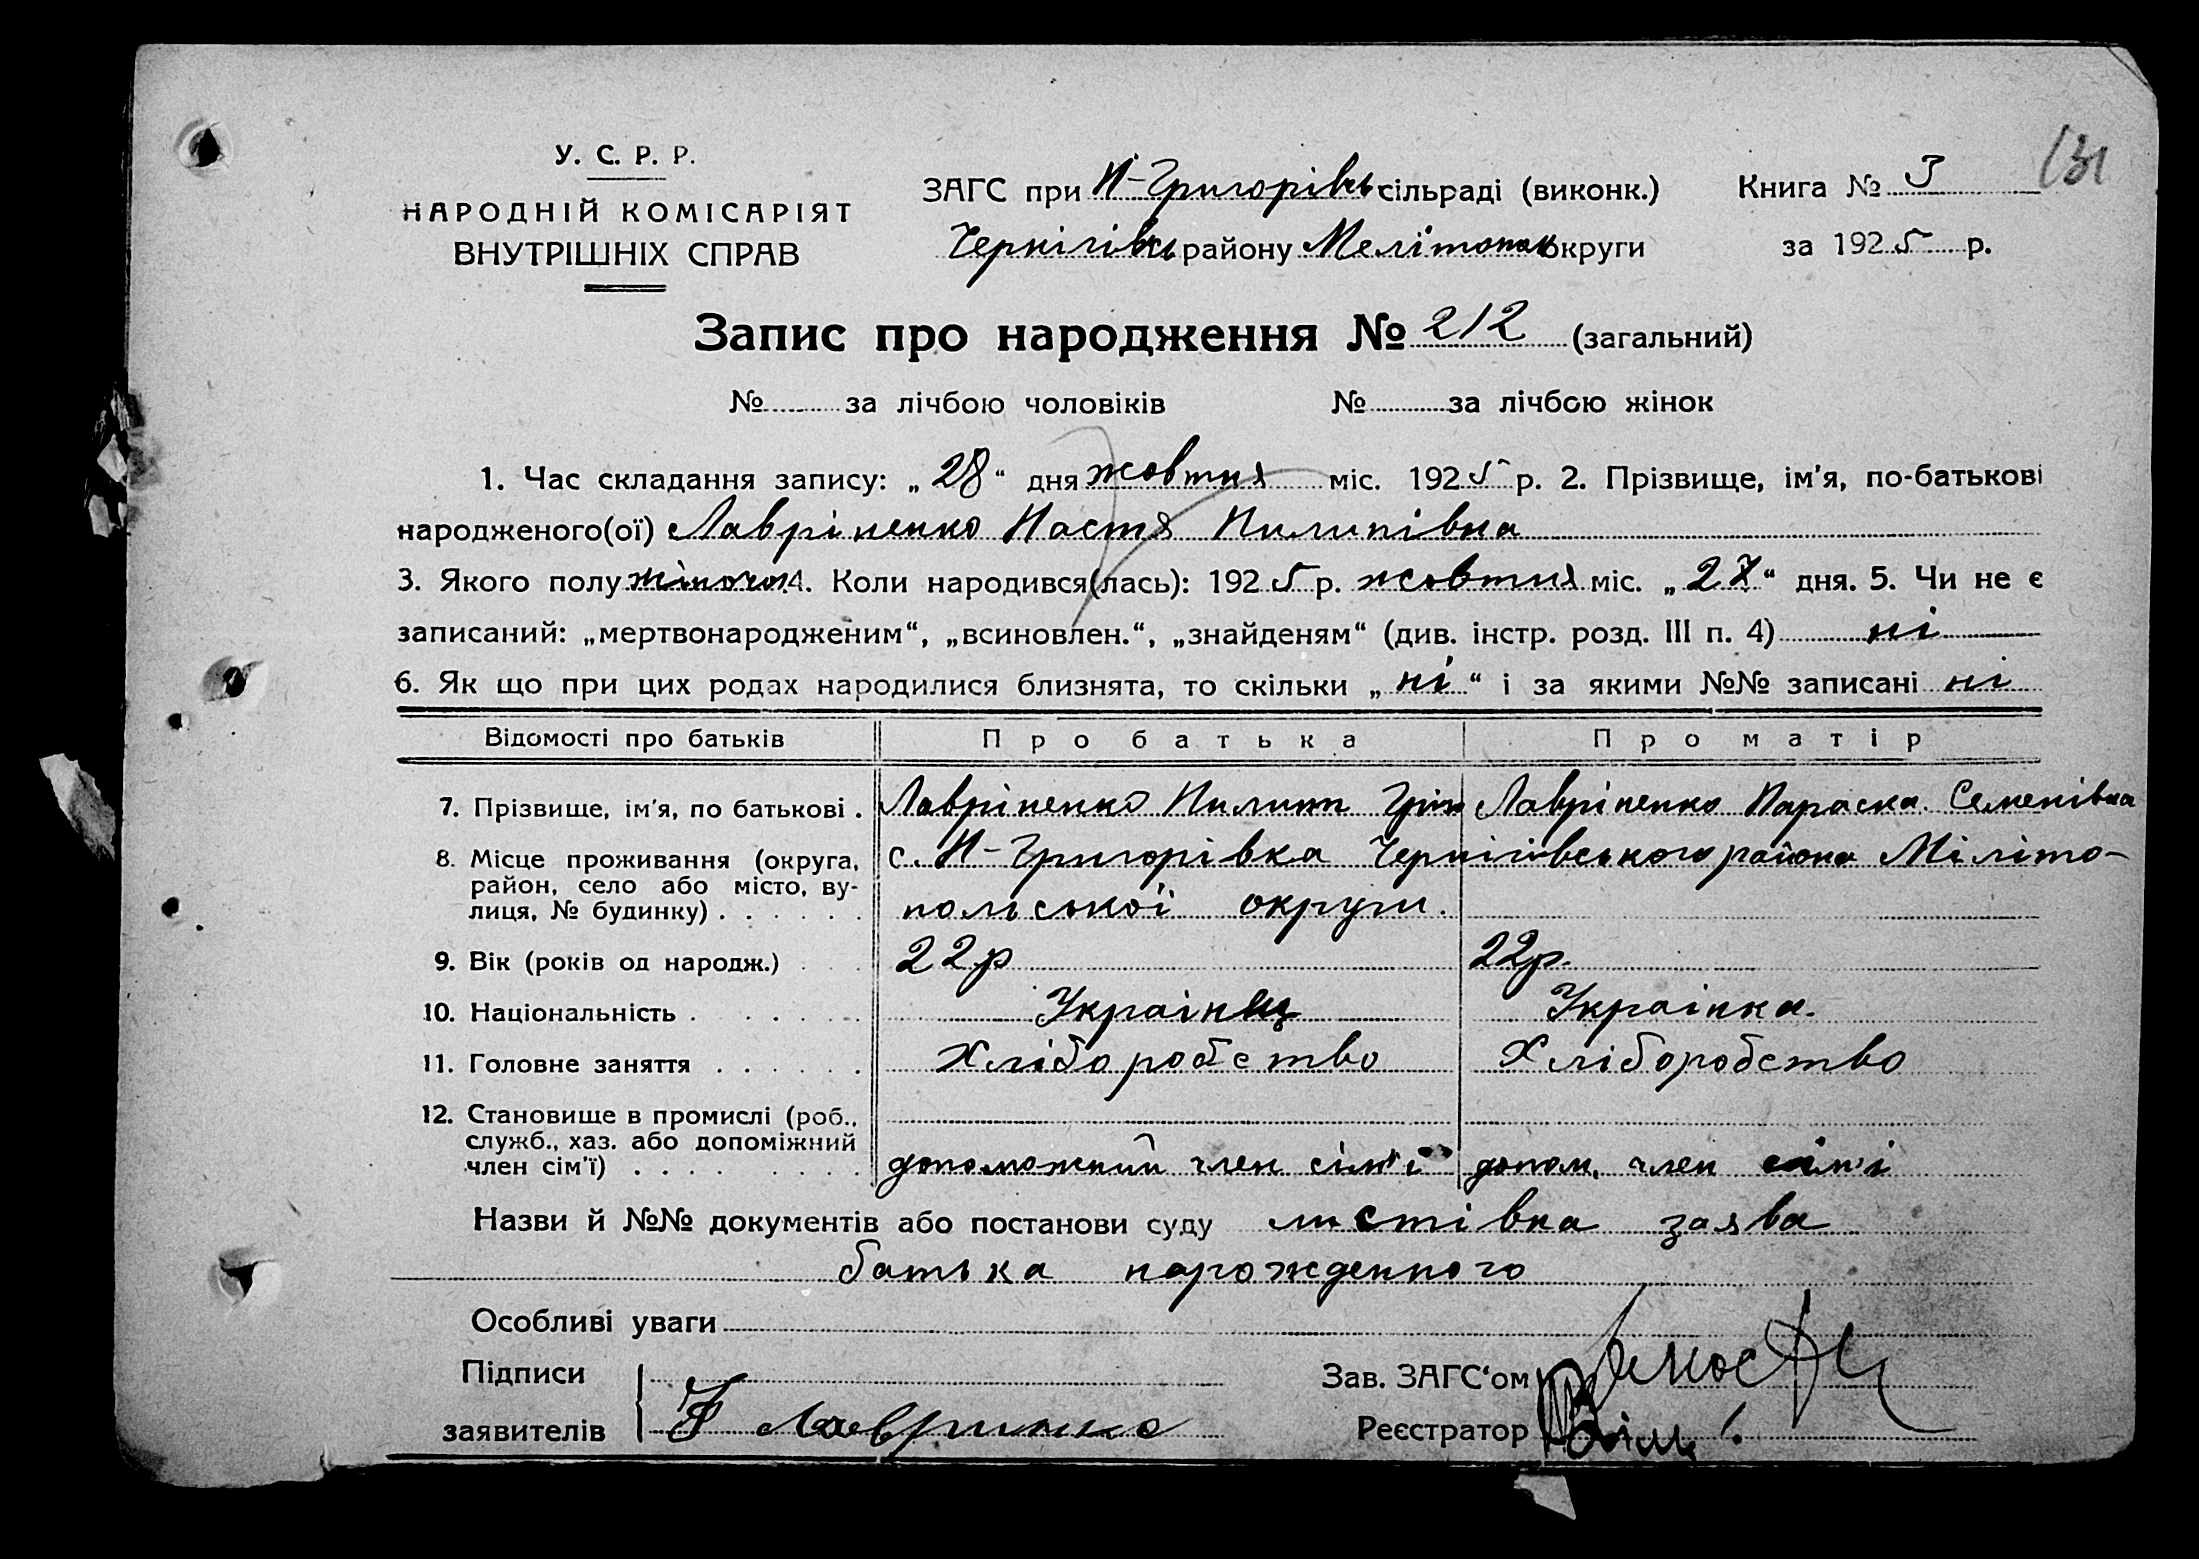 131
У. С. Р. Р.
НАРОДНІЙ КОМІСАРІЯТ
ВНУТРІШНІХ СПРАВ
ЗАГС при Н-Григорівськ сільраді (виконк.)
Чернігівськ району Мелітопол округи
Книга № 3
за 1925 р.
Запис про народження № 212 (загальний)
№ за лічбою чоловіків № за лічбою жінок
1. Час складання запису: „28“ дня жовтня міс. 1925 р. 2. Прізвище, ім'я, по-батькові
народженого(ої) Лавріненко Настя Пилипівна
3. Якого полу жіночо 4. Коли народився(лась): 1925 р. жовтня міс. „27“ дня. 5. Чи не є
записаний: „мертвонародженим“, „всиновлен.“, „знайденям“ (див. інстр. розд. III п. 4) ні
6. Як що при цих родах народилися близнята, то скільки „ні“ і за якими №№ записані ні
Відомості про батьків Про батька Про матір
7. Прізвище, ім'я, по батькові . Лавріненко Пилип Григ Лавріненко Параска Семенівна
8. Місце проживання (округа, район, село або місто, вулиця, № будинку) . . . . . . с. Н-Григорівка Чернігівського района Міліто-
польської округи.
9. Вік (років од народж.) 22р 22р.
10. Національність . . . . . . Українец Українка.
11. Головне заняття . . . . . . Хліборобство Хліборобство
12. Становище в промислі (роб., служб., хаз. або допоміжний член сім'ї) . . . . допоможний член сім'ї допом. член сім'ї
Назви й №№ документів або постанови суду листівна заява
батька нарожденного
Особливі уваги
Підписи
заявителів
Зав. ЗАГС'ом
Реєстратор